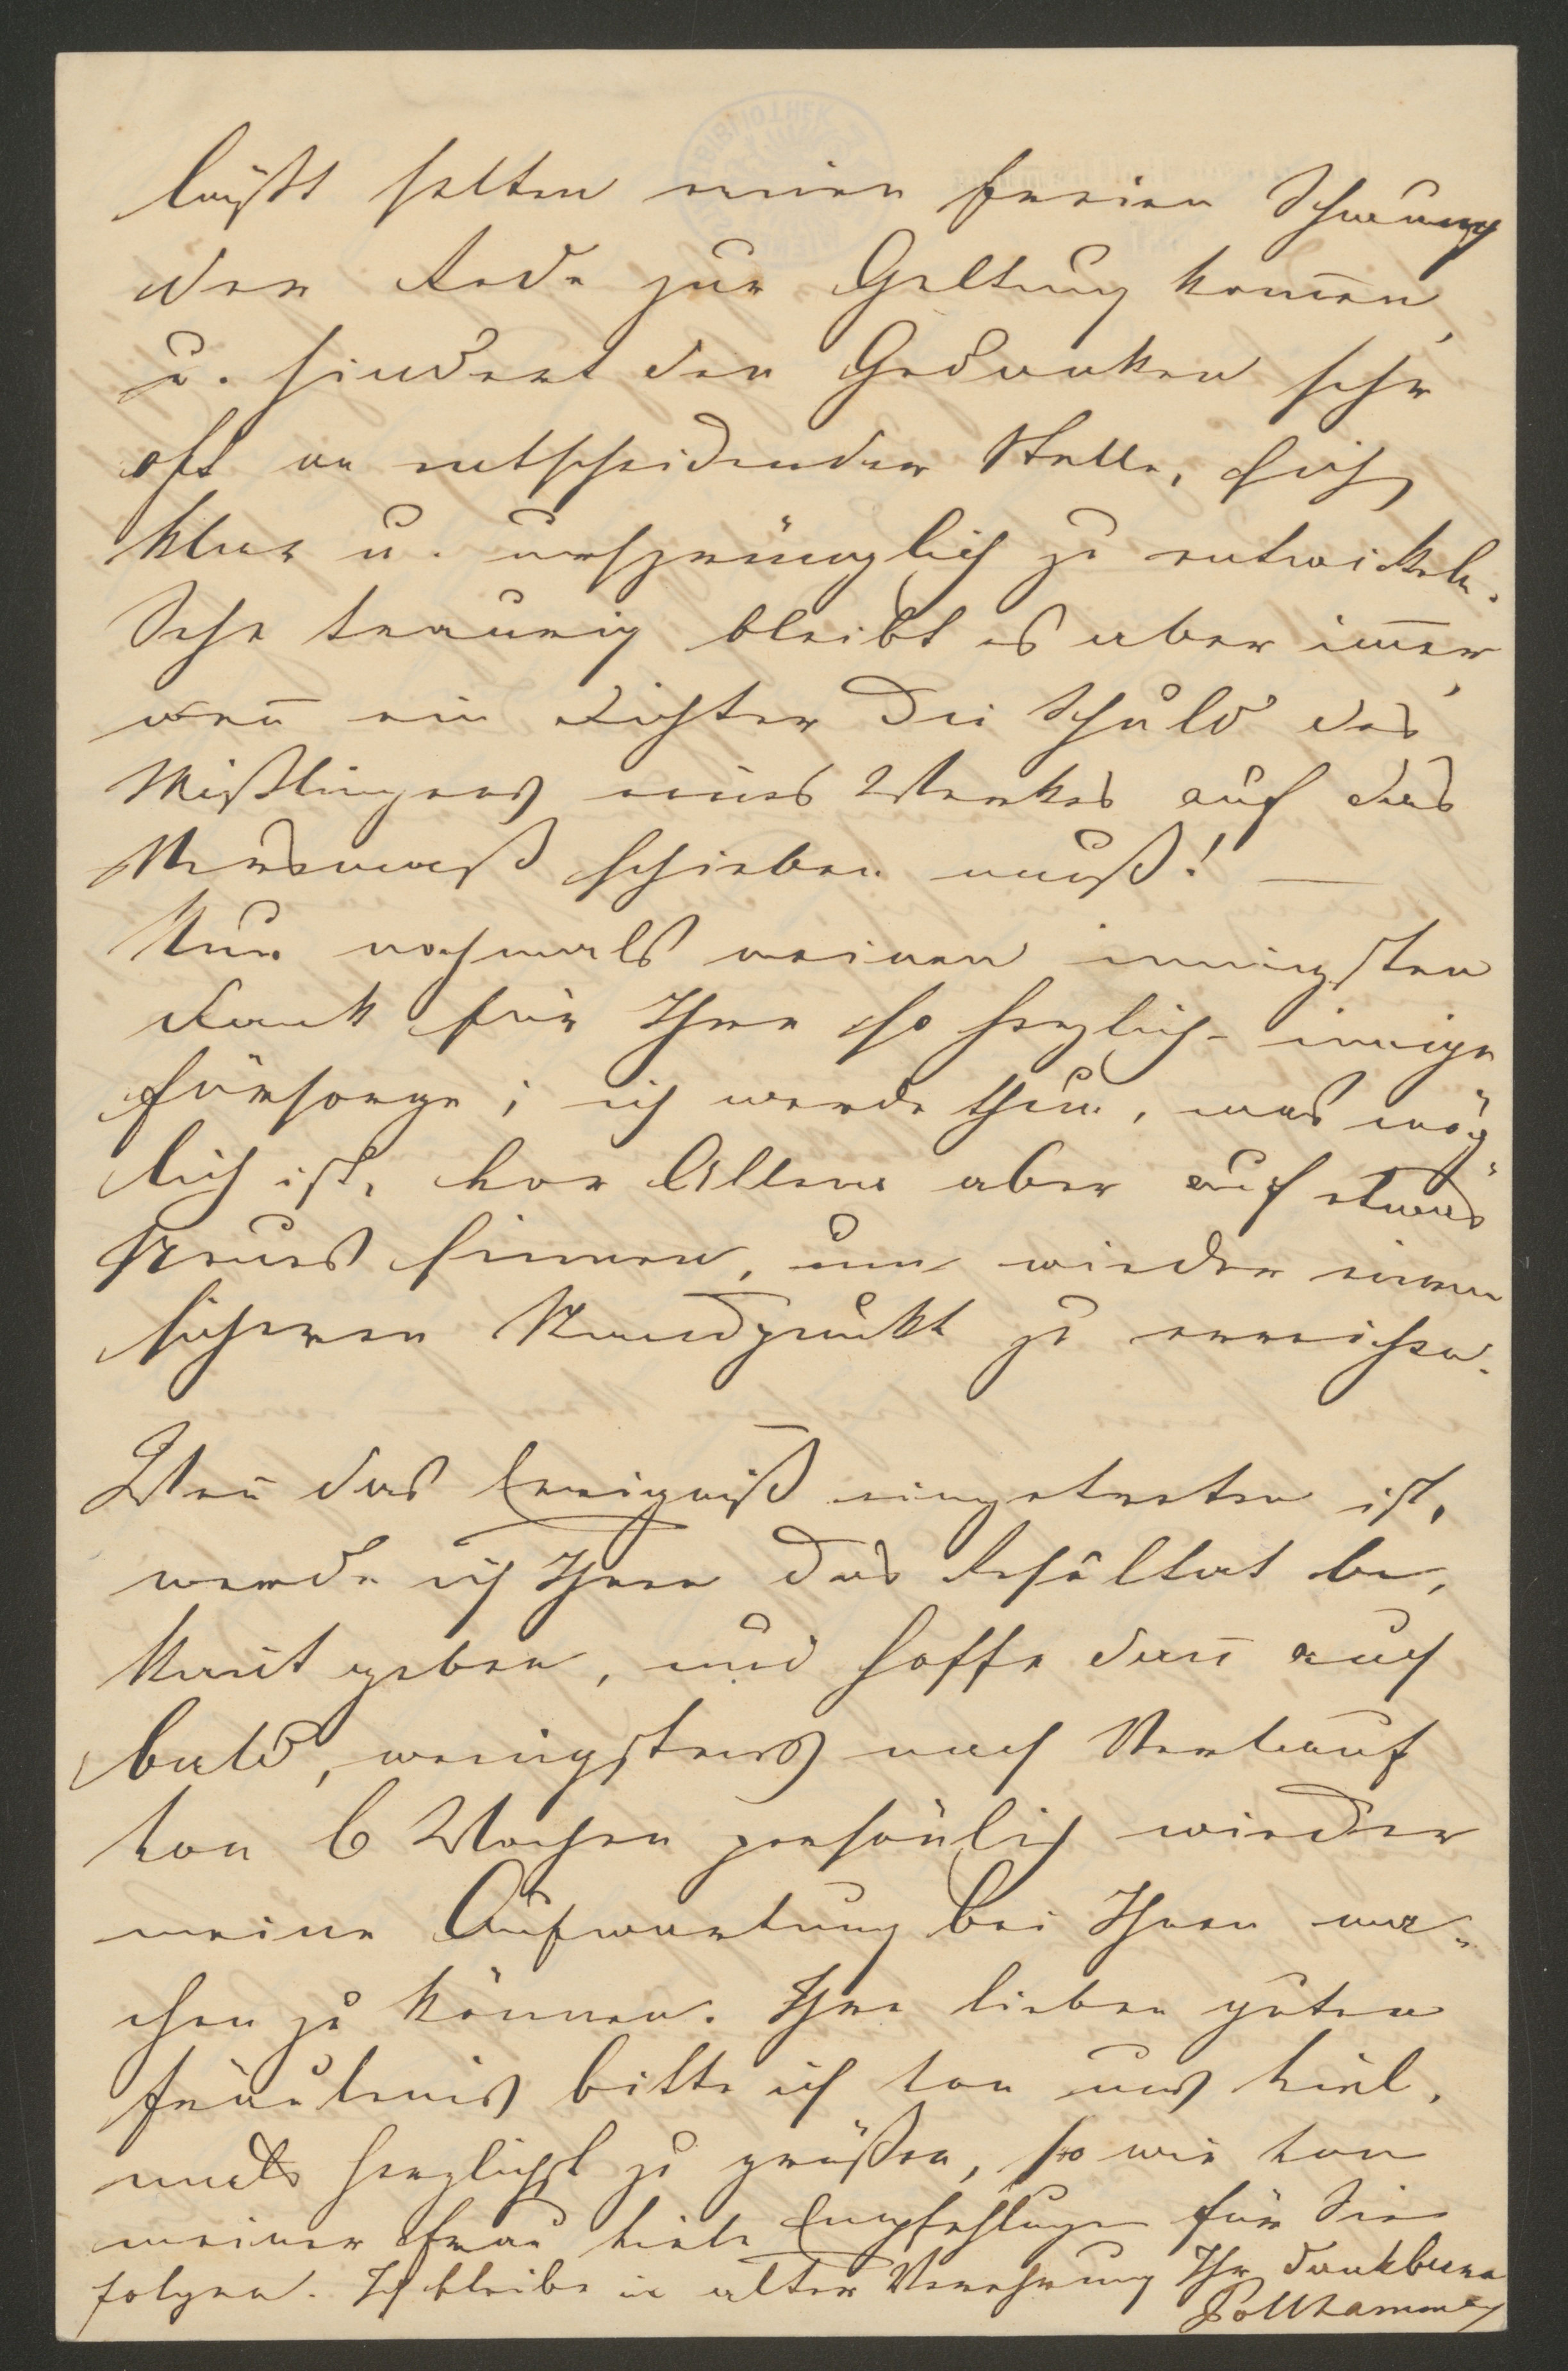 läßt selten einen freien Schwung
der Rede zur Geltung kom̄en,
u. hindert den Gedanken sehr
oft an entscheidender Stelle, sich
klar u. ursprünglich zu entwickeln.
Sehr traurig bleibt es aber im̄er,
wen̄ ein Dichter die Schuld des
Mißlingens eines Werkes auf das
Versmaß schieben muß! —
Nun nochmals meinen innigsten
Dank für Ihre so herzlich-innige
Fürsorge; ich werde thun, was mög-
lich ist, vor Allem aber auf etwas
Neues sinnen, um wieder einen
sicheren Standpunkt zu erreichen.
Wen̄ das Ereigniß eingetreten ist,
werde ich Ihnen das Resultat be-
kan̄t geben, und hoffe dan̄ auch
bald, wenigstens nach Verlauf
von 6 Wochen persönlich wieder
meine Aufwartung bei Ihnen ma-
chen zu können. Ihre lieben guten
Fräuleins bitte ich von uns viel-
mals herzlichst zu grüßen, so wie von
meiner Frau viele Empfehlungen für Sie
folgen. Ich bleibe in alter Verehrung Ihr dankbarer
Pollhammer